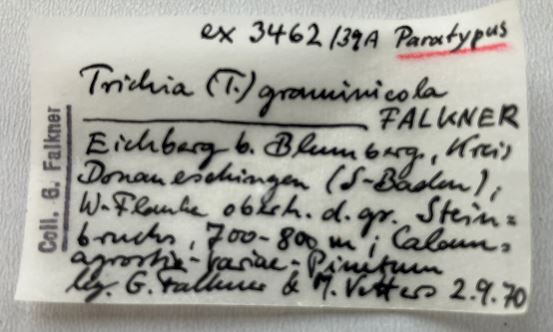 ex 3462/39A Paratypus
Trichia (T.) graminicola
FALKNER
Eichberg b. Blumberg, Kreis
Donaueschingen (S-Baden);
W-Flanke oberh. d. gr. Stein=
bruchs, 700-800 m; Calam=
agrostis-variae-Pinetum
leg. G. Falkner & M. Vetters 2.9.70
Coll. G. Falkner